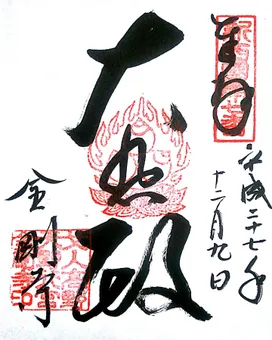 奉拝
平成二十七年
十二月九日
大悲殿
金剛寺